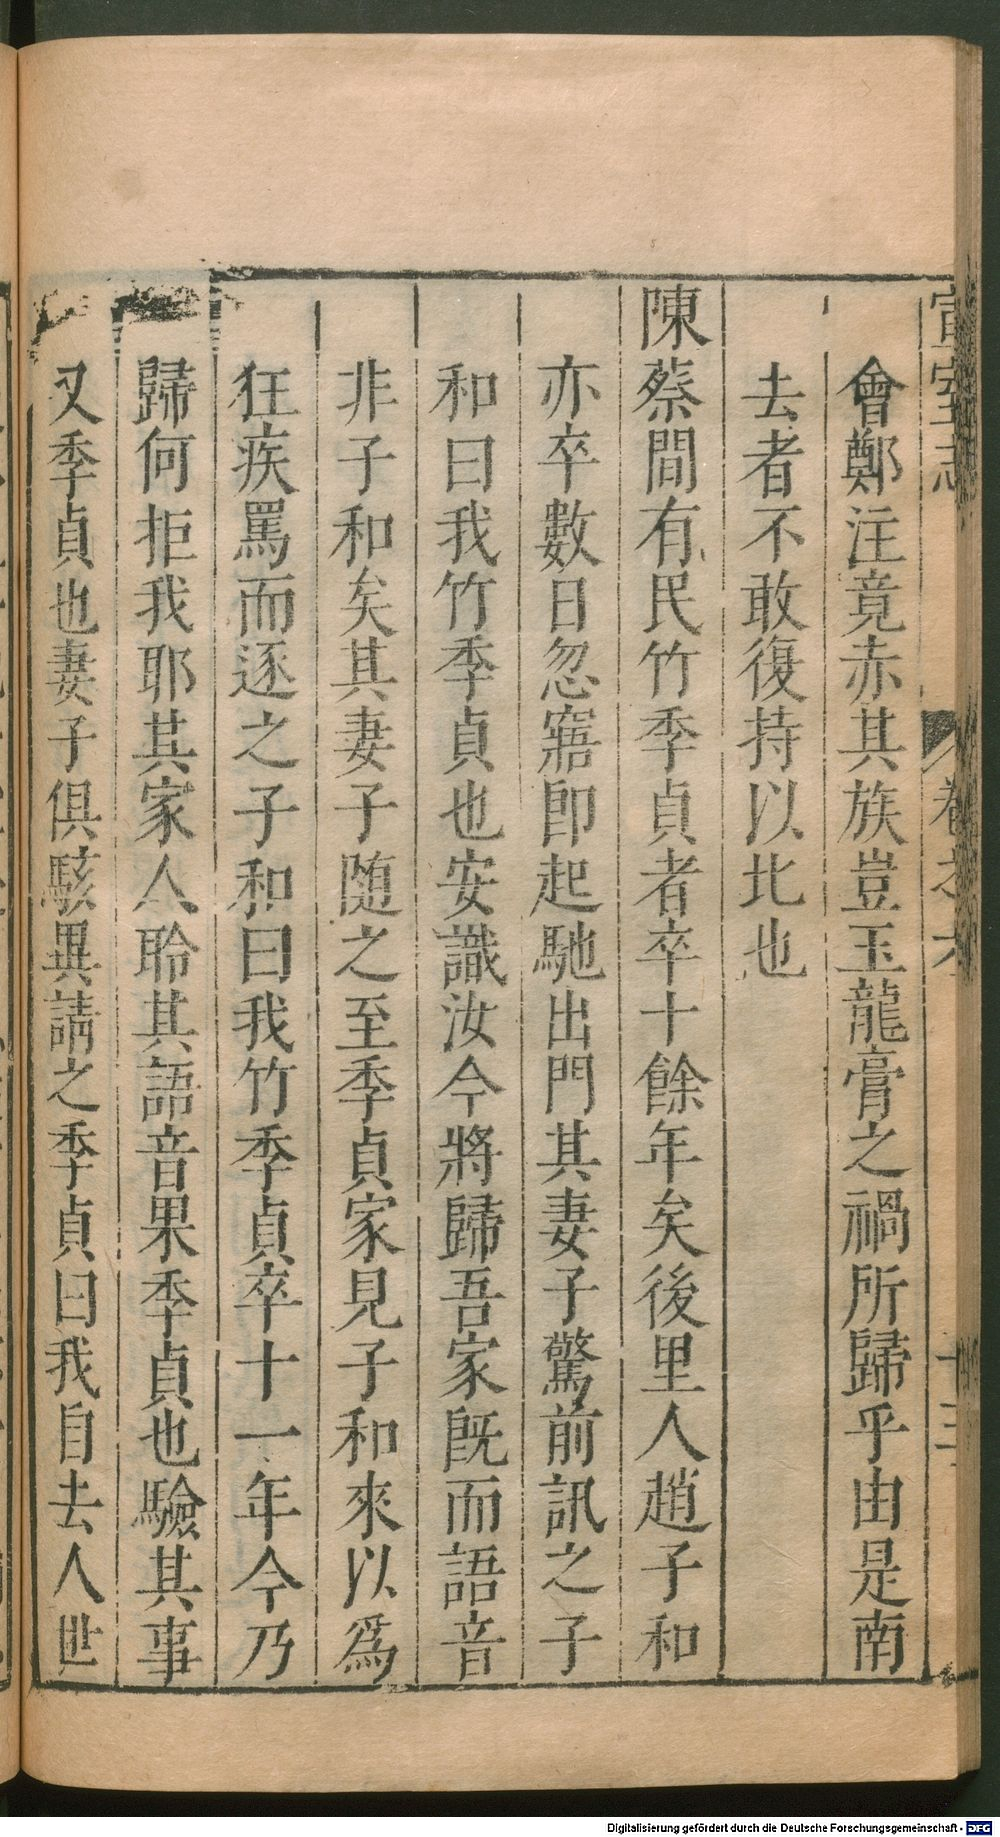 宣室志 卷之六 十三
會鄭注竟赤其族豈玉龍膏之禍所歸乎由是南
去者不敢復持以北也
陳蔡間有民竹季貞者卒十餘年矣後里人趙子和
亦卒數日忽寤即起馳出門其妻子驚前訊之子
和曰我竹季貞也安識汝今將歸吾家既而語音
非子和矣其妻子随之至季貞家見子和來以爲
狂疾罵而逐之子和曰我竹季貞卒十一年今乃
歸何拒我耶其家人聆其語音果季貞也驗其事
又季貞也妻子俱駭異請之季貞曰我自去人世
Digitalisierung gefördert durch die Deutsche Forschungsgemeinschaft - DFG